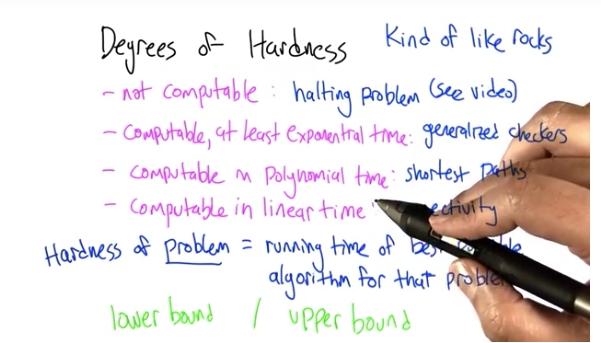 Degrees of Hardness
Kind of like rocks
- not computable : halting problem (see video)
- Computable, at least exponential time: generalized checkers
- computable in polynomial time: shortest paths
- computable in linear time
Hardness of problem = running time of
algorithm for that problem
lower bound / upper bound